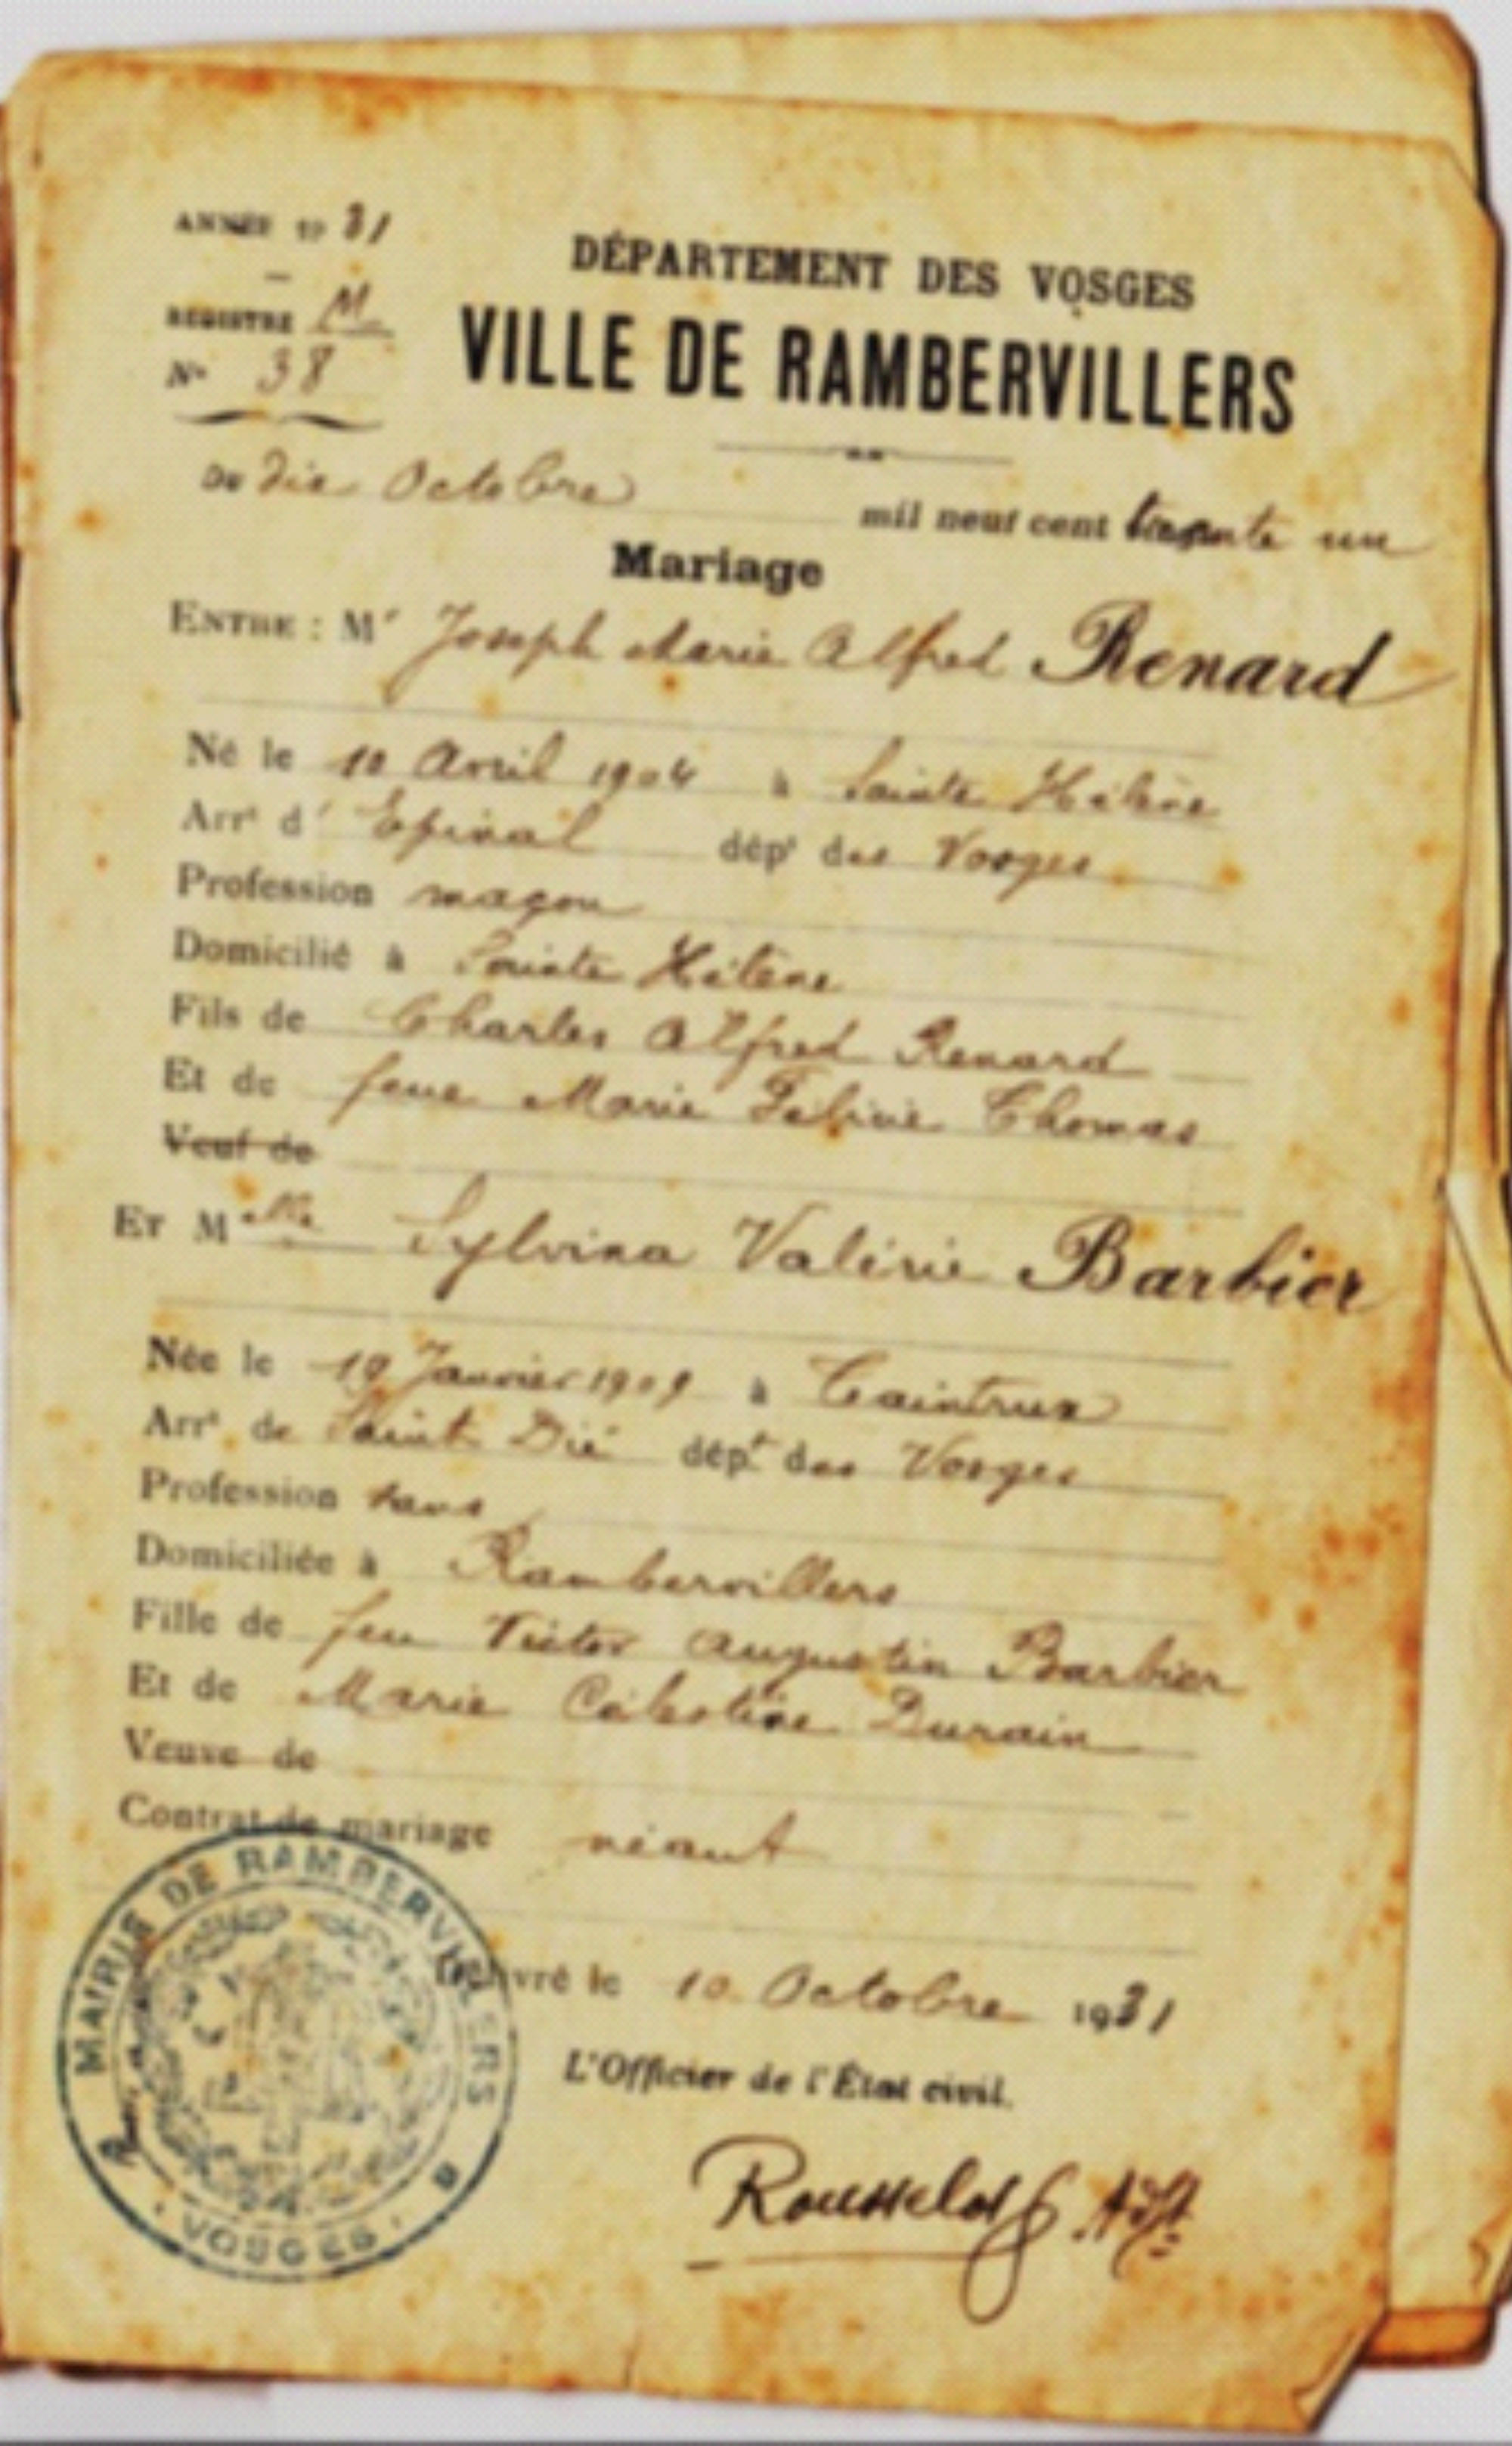 ANNÉE 1931
REGISTRE M
N° 38
DÉPARTEMENT DES VOSGES
VILLE DE RAMBERVILLERS
Du dix Octobre mil neuf cent trente un
Mariage
ENTRE : Mr Joseph Marie Alfred Renard
Né le 10 Avril 1904 à Sainte Hélène
Arrt d' Epinal dépt des Vosges
Profession maçon
Domicilié à Sainte Hélène
Fils de Charles Alfred Renard
Et de feue Marie Félicie Thomas
Veuf de
ET Melle Sylvina Valérie Barbier
Née le 19 Janvier 1909 à Taintrux
Arrt de Saint Dié dépt des Vosges
Profession sans
Domiciliée à Rambervillers
Fille de feu Victor Augustin Barbier
Et de Marie Célestine Durain
Veuve de
Contrat de mariage néant
Délivré le 10 Octobre 1931
L'Officier de l'État civil.
Rousselot Adjt
MAIRIE DE RAMBERVILLERS
VOSGES